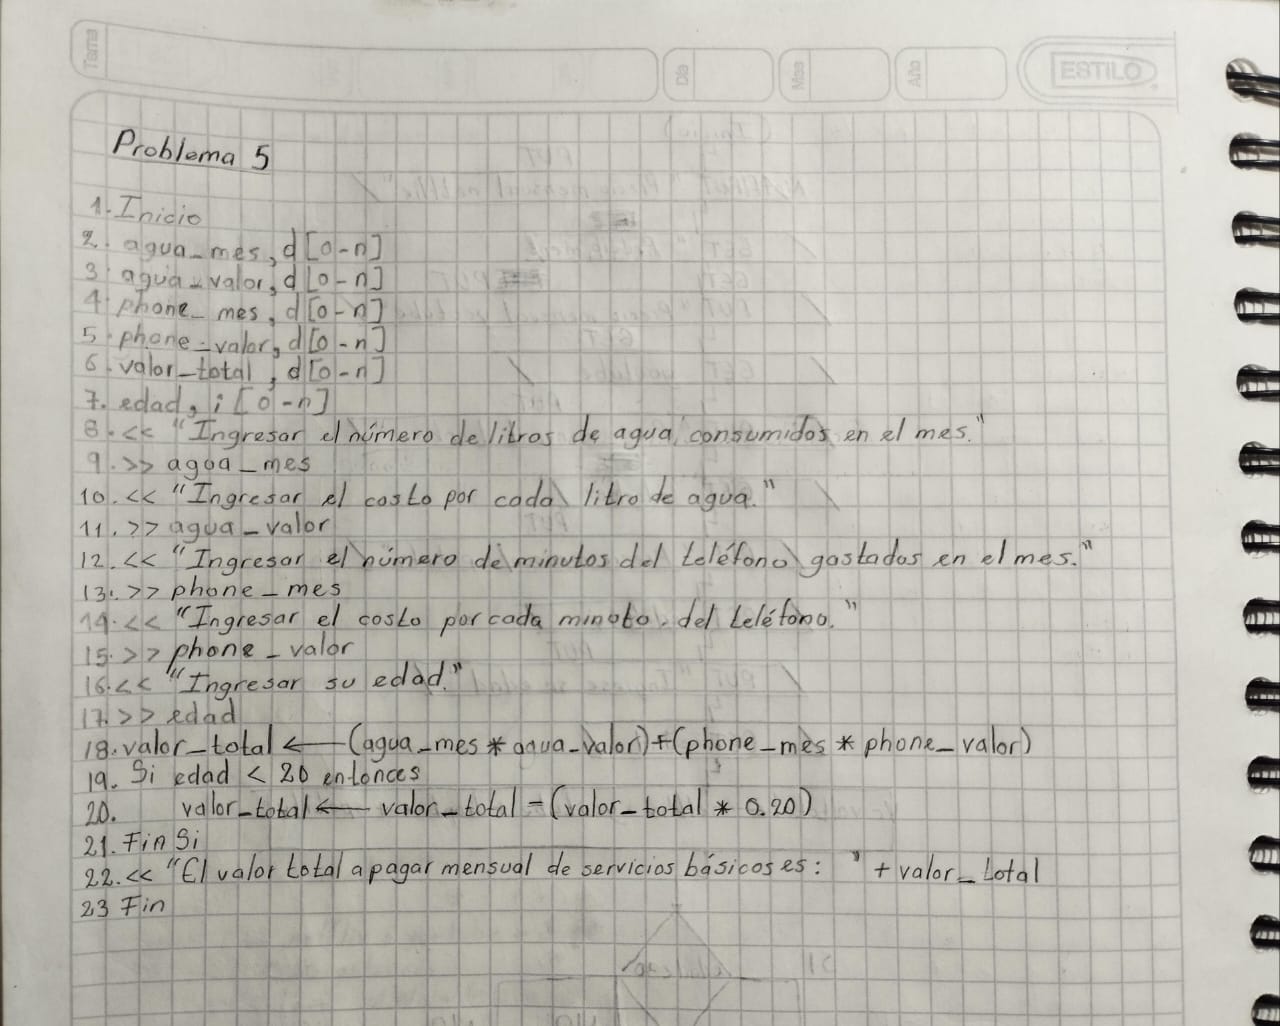 Tema
Día
Mes
Año
ESTILO
Problema 5
1. Inicio
2. agua_mes, d[0-n]
3. agua_valor, d[0-n]
4. phone_mes, d[0-n]
5. phone_valor, d[0-n]
6. valor_total, d[0-n]
7. edad, i[0-n]
8. << "Ingresar el número de litros de agua consumidos en el mes."
9. >> agua_mes
10. << "Ingresar el costo por cada litro de agua."
11. >> agua_valor
12. << "Ingresar el número de minutos del teléfono gastados en el mes."
13. >> phone_mes
14. << "Ingresar el costo por cada minuto del teléfono."
15. >> phone_valor
16. << "Ingresar su edad."
17. >> edad
18. valor_total ← (agua_mes * agua_valor)+(phone_mes * phone_valor)
19. Si edad < 20 entonces
20. valor_total ← valor_total - (valor_total * 0.20)
21. Fin Si
22. << "El valor total a pagar mensual de servicios básicos es: " + valor_total
23 Fin